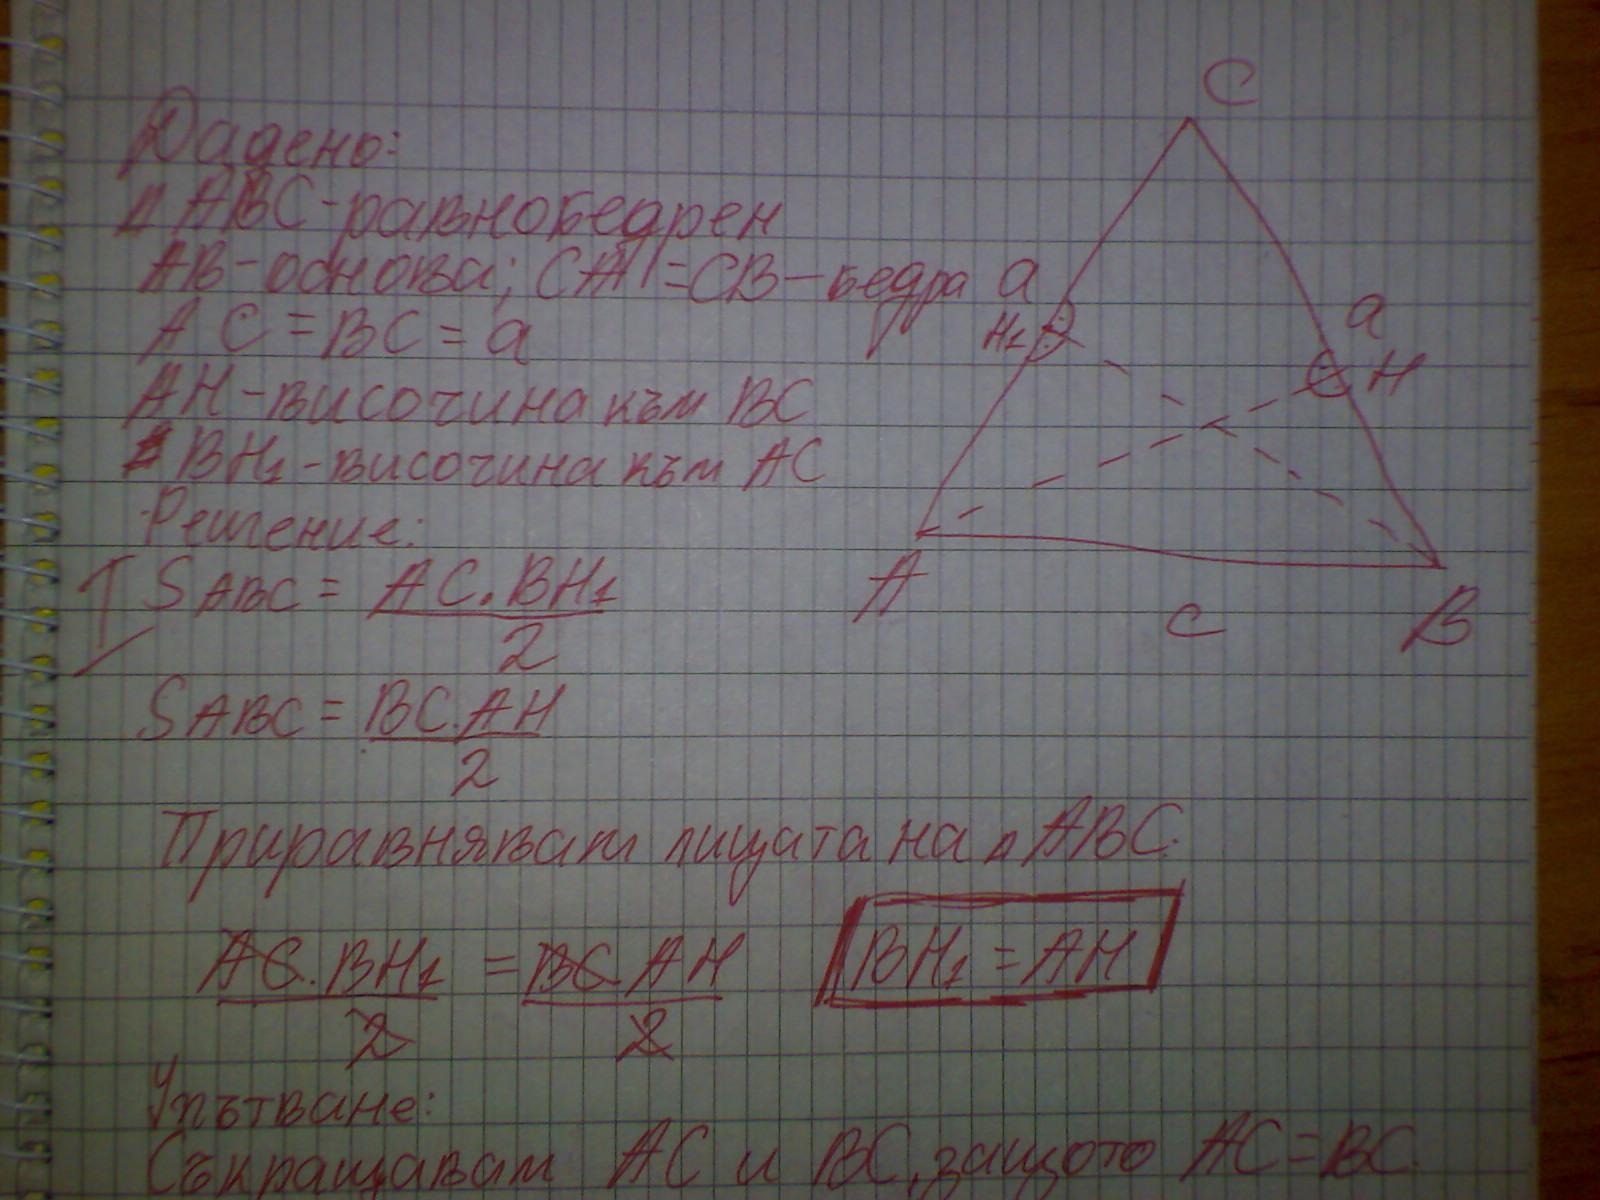 Дадено:
△ ABC - равнобедрен
AB - основа; CA = CB - бедра
AC = BC = a
AH - височина към BC
BH₁ - височина към AC
Решение:
I S ABC = AC.BH₁
2
S ABC = BC.AH
2
Приравнявам лицата на △ ABC.
AC.BH₁ = BC AH
2 2
BH₁ = AH
Упътване:
Съкращавам AC и BC, защото AC = BC.
C
a
a
H₁
H
A
c
B